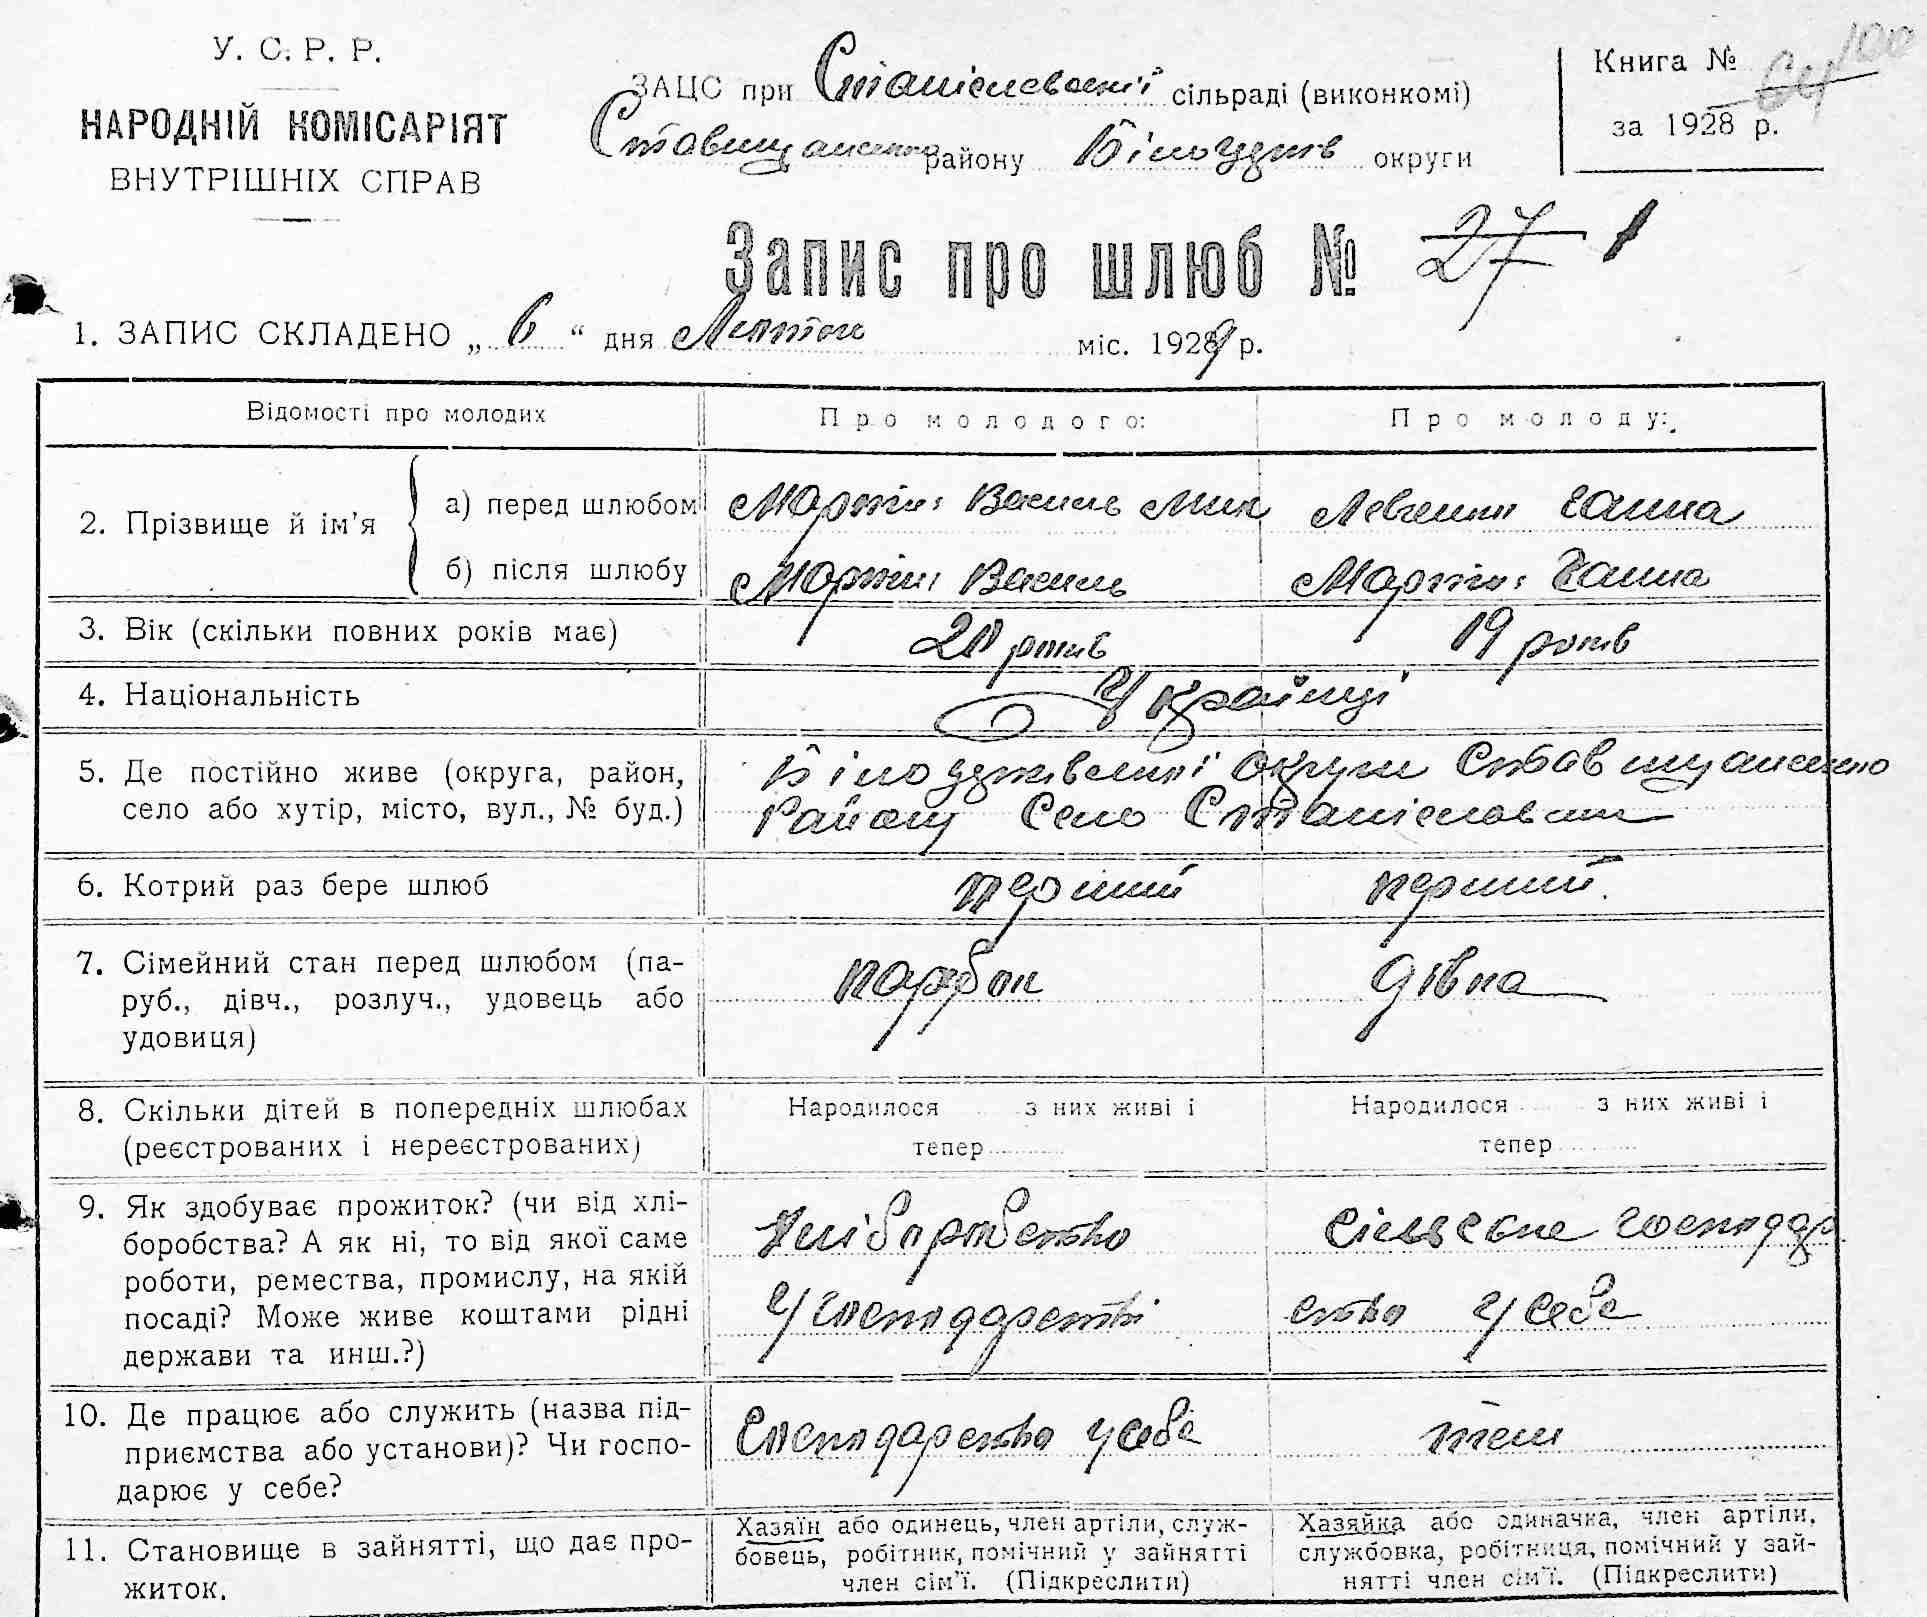 У. С. Р. Р.
НАРОДНІЙ КОМІСАРІЯТ
ВНУТРІШНІХ СПРАВ
ЗАЦС при Станіславській сільраді (виконкомі)
Ставищанськ району Білоцерків округи
Книга №
за 1928 р.
Запис про шлюб № 27 1
1. ЗАПИС СКЛАДЕНО „ 6 “ дня Лютого міс. 1929 р.
Відомості про молодих Про молодого: Про молоду:
2. Прізвище й ім’я
а) перед шлюбом Василь Мик Левченко Ганна
б) після шлюбу Василь Ганна
3. Вік (скільки повних років має) років 19 років
4. Національність Українці
5. Де постійно живе (округа, район, Білоцерківської округи Ставищанського
село або хутір, місто, вул., № буд.) Району Село Станіславчик
6. Котрий раз бере шлюб перший перший.
7. Сімейний стан перед шлюбом (па-
руб., дівч., розлуч., удовець або парубок дівка
удовиця)
8. Скільки дітей в попередніх шлюбах Народилося з них живі і Народилося з них живі і
(реєстрованих і нереєстрованих) тепер тепер
9. Як здобуває прожиток? (чи від хлі-
боробства? А як ні, то від якої саме Хліборобство Сільське господар
роботи, ремества, промислу, на якій
посаді? Може живе коштами рідні У господарстві ство у себе
держави та инш.?)
10. Де працює або служить (назва під-
приємства або установи)? Чи госпо- Господарство у себе теж
дарює у себе?
11. Становище в зайнятті, що дає про-
житок.
Хазяїн або одинець, член артіли, служ-
бовець, робітник, помічний у зайнятті
член сім’ї. (Підкреслити)
Хазяйка або одиначка, член артіли,
службовка, робітниця, помічний у зай-
нятті член сім’ї. (Підкреслити)